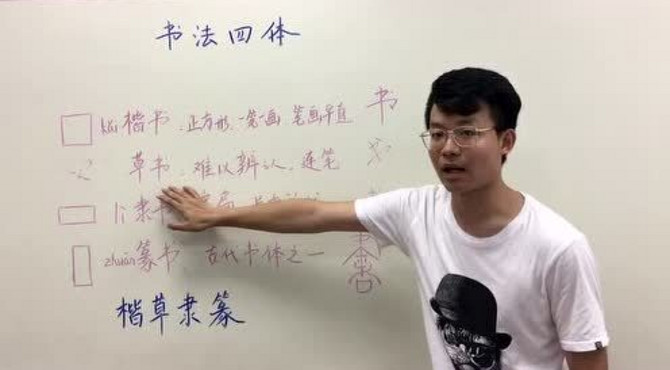 书法四体
kǎi楷书、正方形、一笔一画 笔画平直 书
草书、难以辨认、连笔
lì隶书
zhuàn篆书 古代书体之一
楷草隶篆